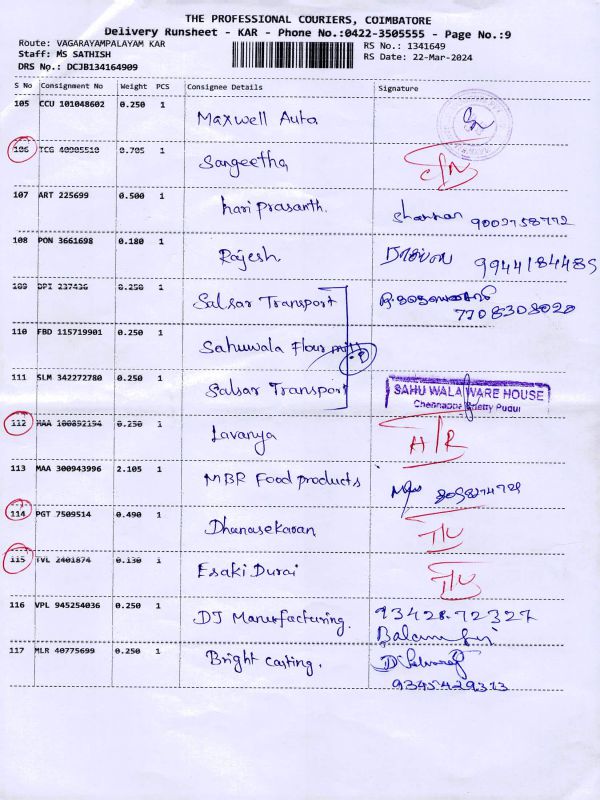 THE PROFESSIONAL COURIERS, COIMBATORE
Delivery Runsheet - KAR - Phone No.:0422-3505555 - Page No.:9
Route: VAGARAYAMPALAYAM KAR
RS No.: 1341649
Staff: MS SATHISH
RS Date: 22-Mar-2024
DRS No.: DCJB134164909
S No Consignment No Weight PCS Consignee Details Signature
105 CCU 101048602 0.250 1 Maxwell Auto
106 TCG 40905510 0.705 1 Sangeetha
107 ART 225699 0.500 1 hari prasanth.
108 PON 3661698 0.180 1 Rajesh 9944184485
109 OPI 237436 0.250 1 Salsar Transport 7708308020
110 FBD 115719901 0.250 1 Sahuwala Flour mill
111 SLM 342272780 0.250 1 Salsar Transport
SAHU WALA WARE HOUSE
Chennappa Chetty Pudur
112 MAA 100892194 0.250 1 Lavanya
113 MAA 300943996 2.105 1 MBR Food products
114 PGT 7509514 0.490 1 Dhanasekaran
115 TVL 2401874 0.130 1 Esaki Durai
116 VPL 945254036 0.250 1 DJ Manufacturing. 93428-72327
117 MLR 40775699 0.250 1 Bright casting.
9345429313